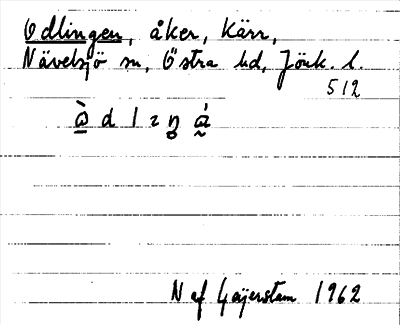 Odlingen, åker, Kärr,
Nävelsjö sn, Östra hd, Jönk. l.
512
d l ɪ ŋ
N af Geijerstam 1962